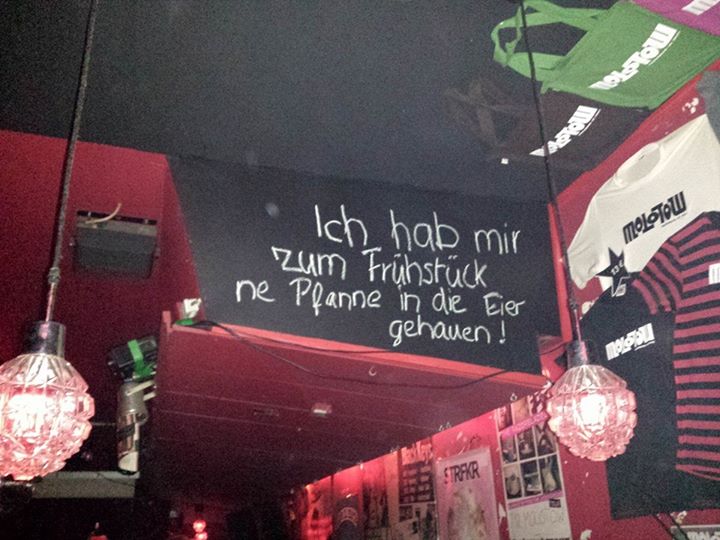 MOLOTOW
MOLOTOW
Ich hab mir
zum Frühstück
ne Pfanne in die Eier
gehauen!
MOLOTOW
MOLOTOW
STRFKR